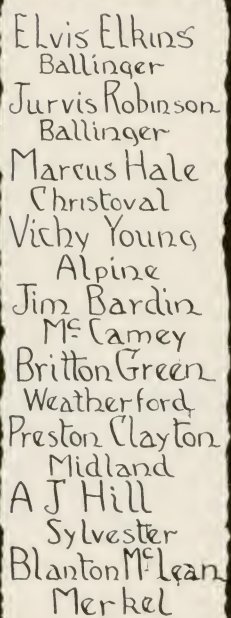 Elvis Elkins
Ballinger
Jurvis Robinson
Ballinger
Marcus Hale
Christoval
Vichy Young
Alpine
Jim Bardin
McCamey
Britton Green
Weatherford
Preston Clayton
Midland
A J Hill
Sylvester
Blanton McLean
Merkel